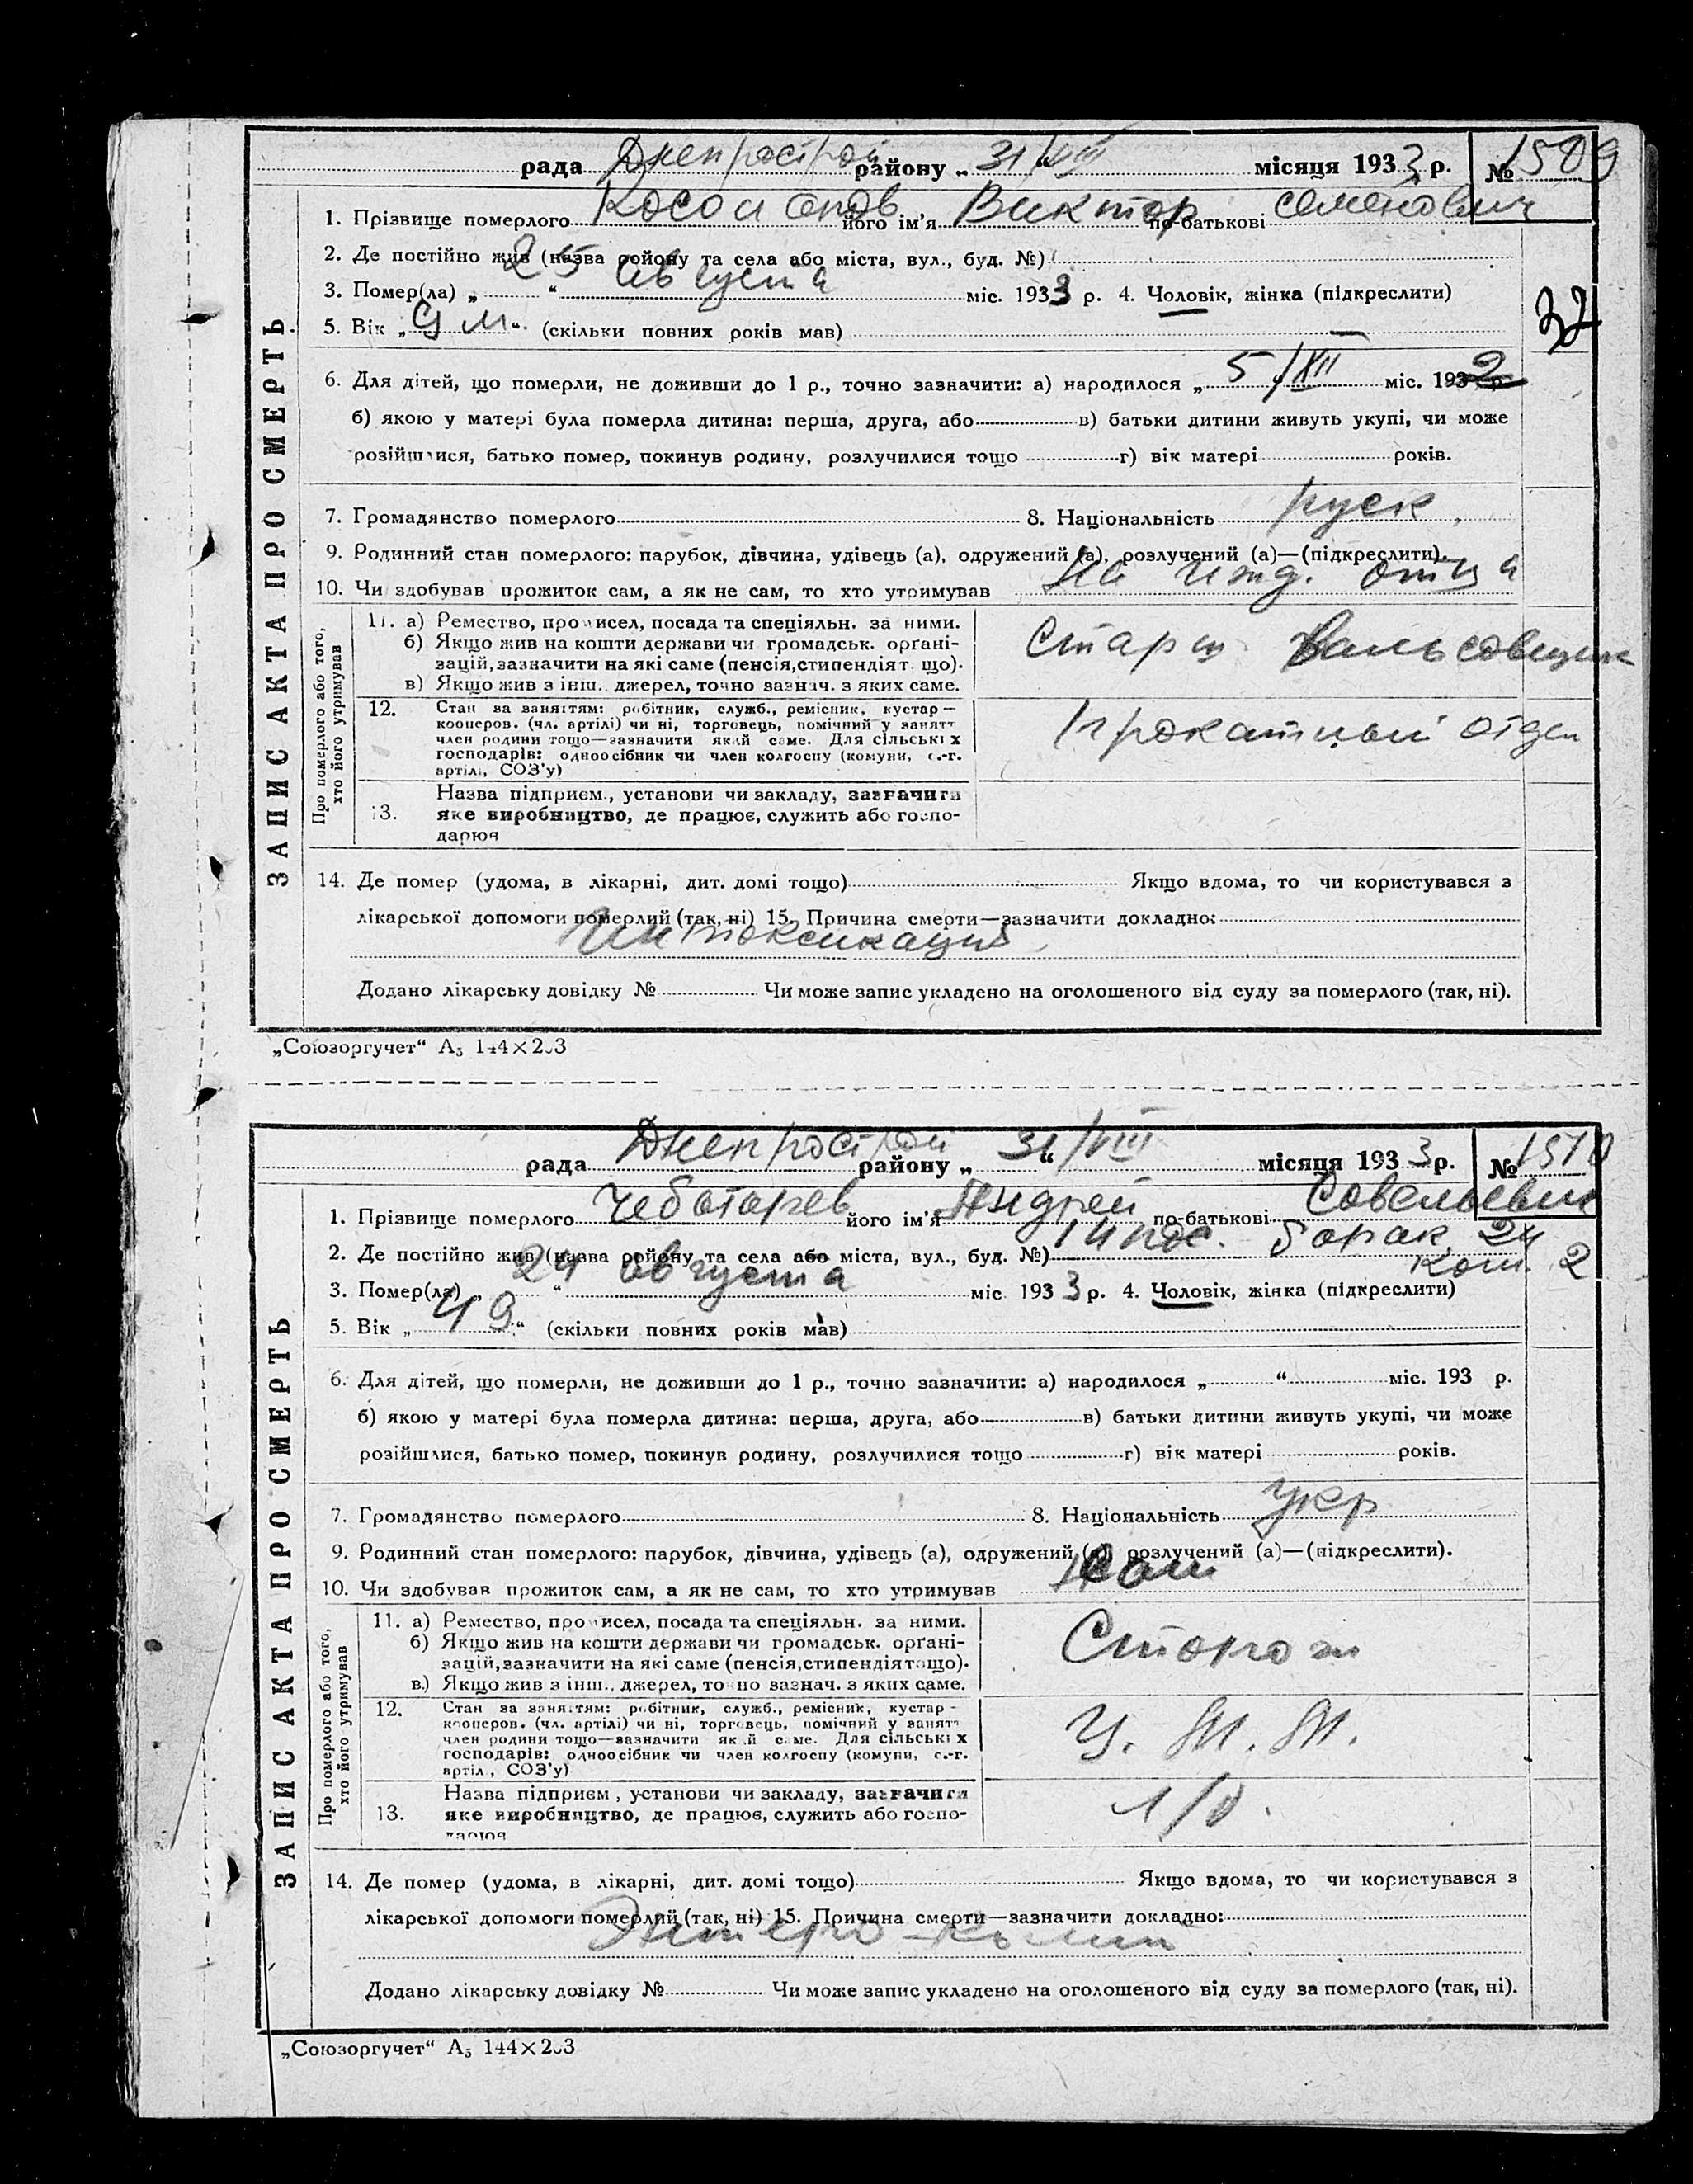 рада Днепрострой району „ 31/VIII “ місяця 1933 р. № 1509
1. Прізвище померлого його ім'я Виктор по-батькові Семенович
2. Де постійно жив (назва району та села або міста, вул., буд. №)
3. Помер(ла) „ 25 “ августа міс. 1933 р. 4. Чоловік, жінка (підкреслити)
5. Вік „ 9 м “ (скільки повних років мав) —
37
6. Для дітей, що померли, не доживши до 1 р., точно зазначити: а) народилося „ 5 “ /XII міс. 1932 р.
б) якою у матері була померла дитина: перша, друга, або в) батьки дитини живуть укупі, чи може
розійшлися, батько помер, покинув родину, розлучилися тощо г) вік матері років.
7. Громадянство померлого 8. Національність руск.
9. Родинний стан померлого: парубок, дівчина, удівець (а), одружений (а), розлучений (а)—(підкреслити).
10. Чи здобував прожиток сам, а як не сам, то хто утримував На ижд. отца
ЗАПИС АКТА ПРО СМЕРТЬ
Про померлого або того, хто його утримував
11. а) Ремество, промисел, посада та спеціяльн. за ними.
б) Якщо жив на кошти держави чи громадськ. орґані-
зацій, зазначити на які саме (пенсія, стипендія т що).
в) Якщо жив з інш. джерел, точно зазнач. з яких саме.
Старш. вальсовщик
12. Стан за заняттям: робітник, служб., ремісник, кустар—
кооперов. (чл. артілі) чи ні, торговець, помічний у занятт
член родини тощо—зазначити який саме. Для сільських
господарів: одноосібник чи член колгоспу (комуни, с.-г.
артіл., СОЗ'у)
Прокатный отдел
13. Назва підприєм., установи чи закладу, зазначити
яке виробництво, де працює, служить або госпо-
дарює
14. Де помер (удома, в лікарні, дит. домі тощо) Якщо вдома, то чи користувався з
лікарської допомоги померлий (так, ні) 15. Причина смерти—зазначити докладно:
Интоксикация
Додано лікарську довідку № Чи може запис укладено на оголошеного від суду за померлого (так, ні).
„Союзоргучет“ А₅ 144×203
рада Днепрострой району „ 31 “ /VIII місяця 1933 р. № 1510
1. Прізвище померлого Чеботарев його ім'я Андрей по-батькові Савельевич
2. Де постійно жив (назва району та села або міста, вул., буд. №) 14 пос. барак 24
ком. 2
3. Помер(ла) „ 24 “ августа міс 1933 р. 4. Чоловік, жінка (підкреслити)
5. Вік „ 49 “ (скільки повних років мав)
6. Для дітей, що померли, не доживши до 1 р., точно зазначити: а) народилося „ “ міс. 193 р.
б) якою у матері була померла дитина: перша, друга, або в) батьки дитини живуть укупі, чи може
розійшлися, батько помер, покинув родину, розлучилися тощо г) вік матері років.
7. Громадянство померлого 8. Національність укр
9. Родинний стан померлого: парубок, дівчина, удівець (а), одружений (а), розлучений (а)—(підкреслити).
10. Чи здобував прожиток сам, а як не сам, то хто утримував Сам
ЗАПИС АКТА ПРО СМЕРТЬ
Про померлого або того, хто його утримував
11. а) Ремество, промисел, посада та спеціяльн. за ними.
б) Якщо жив на кошти держави чи громадськ. орґані-
зацій, зазначити на які саме (пенсія, стипендія тощо).
в) Якщо жив з інш., джерел, точно зазнач. з яких саме.
Сторож
12. Стан за заняттям: робітник, служб., ремісник, кустар-
кооперов. (чл. артілі) чи ні, торговець, помічний у занятт
член родини тощо—зазначити який саме. Для сільських
господарів: одноосібник чи член колгоспу (комуни, с.-г.
артіл., СОЗ'у)
13. Назва підприєм., установи чи закладу, зазначити
яке виробництво, де працює, служить або госпо-
дарює
14. Де помер (удома, в лікарні, дит. домі тощо) Якщо вдома, то чи користувався з
лікарської допомоги померлий (так, ні) 15. Причина смерти—зазначити докладно:
Энтеро-колит
Додано лікарську довідку № Чи може запис укладено на оголошеного від суду за померлого (так, ні).
„Союзоргучет“ А₅ 144×203